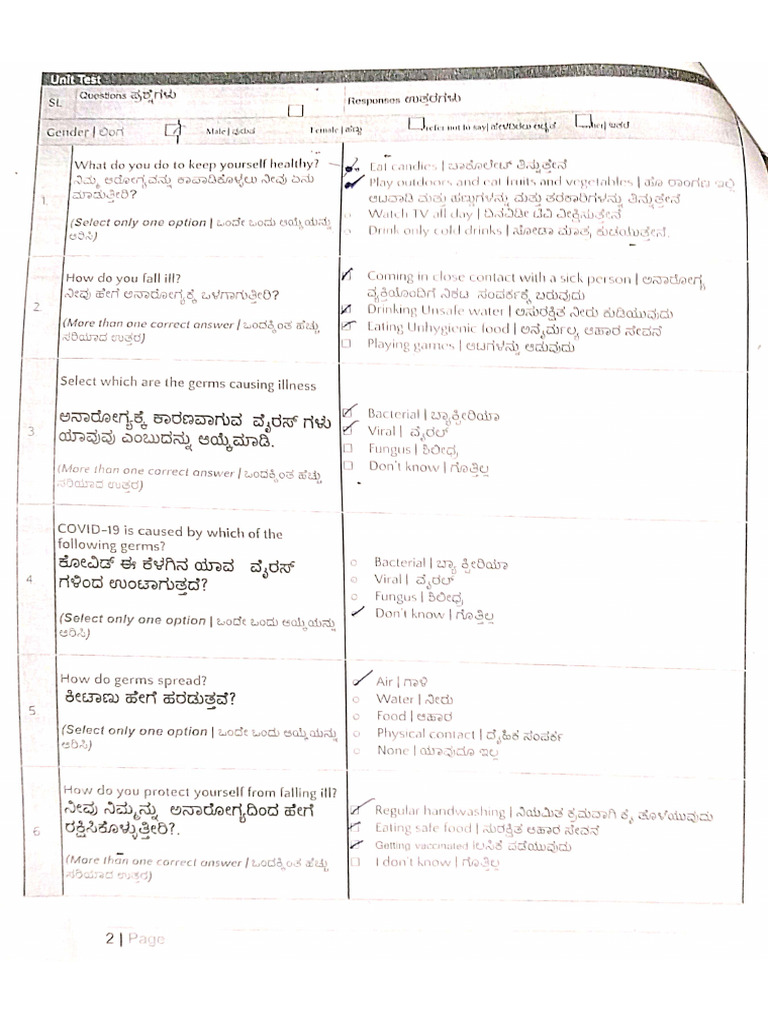 Unit Test
SL
Questions ಪ್ರಶ್ನೆಗಳು
Responses ಉತ್ತರಗಳು
Gender | ಲಿಂಗ
Male | ಪುರುಷ
Female | ಹೆಣ್ಣು
refer not to say |
1.
What do you do to keep yourself healthy?
ನಿಮ್ಮ ಆರೋಗ್ಯವನ್ನು ಕಾಪಾಡಿಕೊಳ್ಳಲು ನೀವು ಏನು
ಮಾಡುತ್ತೀರಿ?
(Select only one option | ಒಂದೇ ಒಂದು ಆಯ್ಕೆಯನ್ನು
ಆರಿಸಿ)
Eat candies | ಚಾಕೊಲೇಟ್ ತಿನ್ನುತ್ತೇನೆ
Play outdoors and eat fruits and vegetables | ಹೊ ರಾಂಗಣ ದಲ್ಲಿ
ಆಟವಾಡಿ ಮತ್ತು ಹಣ್ಣುಗಳನ್ನು ಮತ್ತು ತರಕಾರಿಗಳನ್ನು ತಿನ್ನುತ್ತೇನೆ
Watch TV all day | ದಿನವಿಡೀ ಟಿವಿ ವೀಕ್ಷಿಸುತ್ತೇನೆ
Drink only cold drinks | ಸೋಡಾ ಮಾತ್ರ ಕುಡಿಯುತ್ತೇನೆ.
2.
How do you fall ill?
ನೀವು ಹೇಗೆ ಅನಾರೋಗ್ಯಕ್ಕೆ ಒಳಗಾಗುತ್ತೀರಿ?
(More than one correct answer | ಒಂದಕ್ಕಿಂತ ಹೆಚ್ಚು
ಸರಿಯಾದ ಉತ್ತರ)
Coming in close contact with a sick person | ಅನಾರೋಗ್ಯ
ವ್ಯಕ್ತಿಯೊಂದಿಗೆ ನಿಕಟ ಸಂಪರ್ಕಕ್ಕೆ ಬರುವುದು
Drinking Unsafe water | ಅಸುರಕ್ಷಿತ ನೀರು ಕುಡಿಯುವುದು
Eating Unhygienic food | ಅನೈರ್ಮಲ್ಯ ಆಹಾರ ಸೇವನೆ
Playing games | ಆಟಗಳನ್ನು ಆಡುವುದು
3.
Select which are the germs causing illness
ಅನಾರೋಗ್ಯಕ್ಕೆ ಕಾರಣವಾಗುವ ವೈರಸ್ ಗಳು
ಯಾವುವು ಎಂಬುದನ್ನು ಆಯ್ಕೆಮಾಡಿ.
(More than one correct answer | ಒಂದಕ್ಕಿಂತ ಹೆಚ್ಚು
ಸರಿಯಾದ ಉತ್ತರ)
Bacterial | ಬ್ಯಾಕ್ಟೀರಿಯಾ
Viral | ವೈರಲ್
Fungus | ಶಿಲೀಧ್ರ
Don't know | ಗೊತ್ತಿಲ್ಲ
4
COVID-19 is caused by which of the
following germs?
ಕೋವಿಡ್ ಈ ಕೆಳಗಿನ ಯಾವ ವೈರಸ್
ಗಳಿಂದ ಉಂಟಾಗುತ್ತದೆ?
(Select only one option | ಒಂದೇ ಒಂದು ಆಯ್ಕೆಯನ್ನು
ಆರಿಸಿ)
Bacterial | ಬ್ಯಾ ಕ್ಟೀರಿಯಾ
Viral | ವೈರಲ್
Fungus | ಶಿಲೀಧ್ರ
Don't know | ಗೊತ್ತಿಲ್ಲ
5
How do germs spread?
ಕೀಟಾಣು ಹೇಗೆ ಹರಡುತ್ತವೆ?
(Select only one option | ಒಂದೇ ಒಂದು ಆಯ್ಕೆಯನ್ನು
ಆರಿಸಿ)
Air | ಗಾಳಿ
Water | ನೀರು
Food | ಆಹಾರ
Physical contact | ದೈಹಿಕ ಸಂಪರ್ಕ
None | ಯಾವುದೂ ಇಲ್ಲ
6
How do you protect yourself from falling ill?
ನೀವು ನಿಮ್ಮನ್ನು ಅನಾರೋಗ್ಯದಿಂದ ಹೇಗೆ
ರಕ್ಷಿಸಿಕೊಳ್ಳುತ್ತೀರಿ?.
(More than one correct answer | ಒಂದಕ್ಕಿಂತ ಹೆಚ್ಚು
ಸರಿಯಾದ ಉತ್ತರ)
Regular handwashing | ನಿಯಮಿತ ಕ್ರಮವಾಗಿ ಕೈ ತೊಳೆಯುವುದು
Eating safe food | ಸುರಕ್ಷಿತ ಆಹಾರ ಸೇವನೆ
Getting vaccinated ಲಸಿಕೆ ಪಡೆಯುವುದು
I don't know | ಗೊತ್ತಿಲ್ಲ
2 | Page